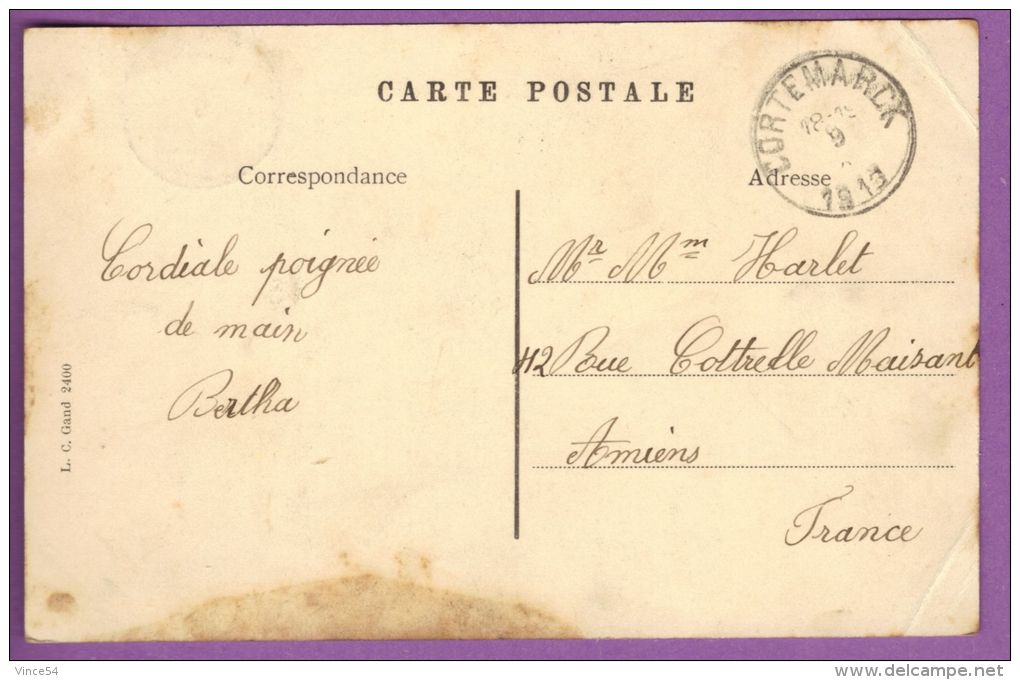 CARTE POSTALE
CORTEMARCK
9
1913
Correspondance
Adresse
Cordiale poignée
de main
Bertha
Mr Mm Harlet
42 Rue Cottrelle Maisant
Amiens
France
L. C. Gand 2400
Vince54
www.delcampe.net